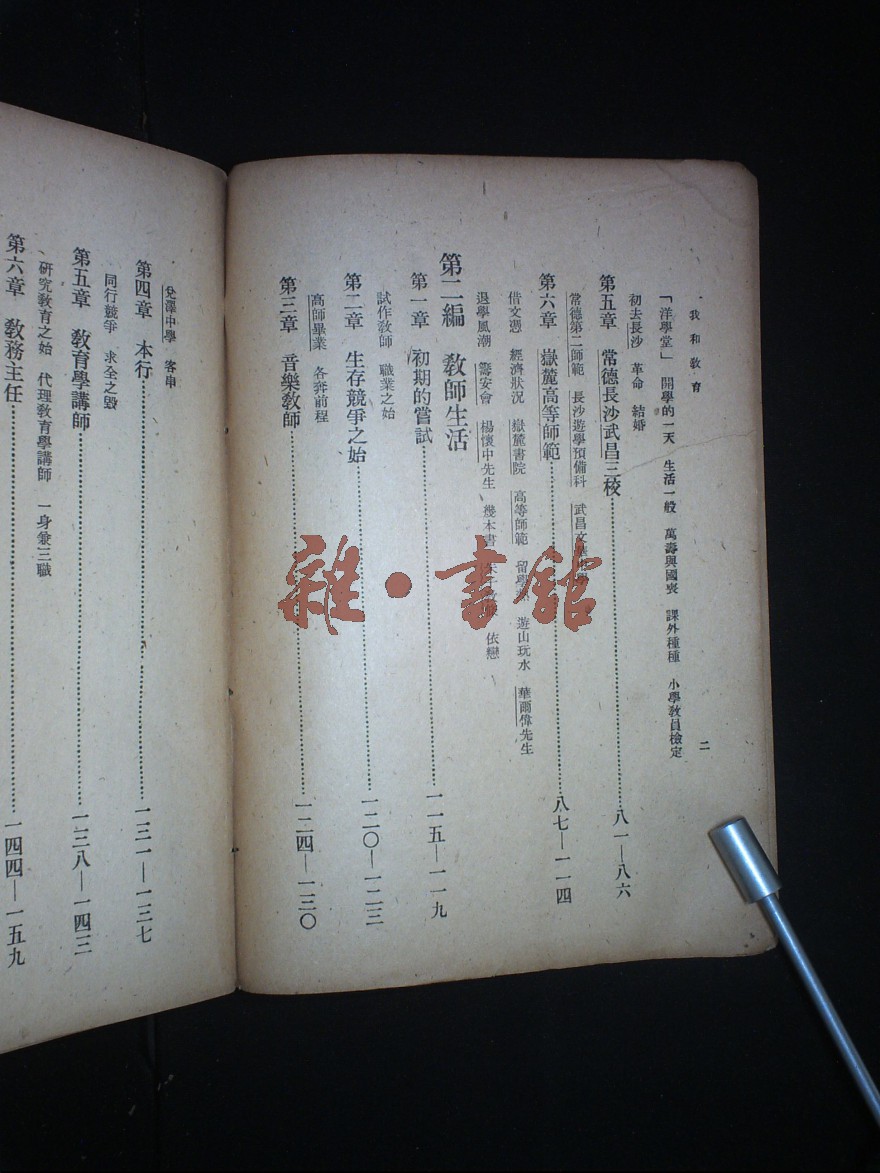 我和教育
二
「洋學堂」 開學的一天 生活一般 萬壽與國喪 課外種種 小學教員檢定
初去長沙 革命 結婚
第五章 常德長沙武昌三校……八一—八六
常德第二師範 長沙遊學預備科 武昌文
第六章 嶽麓高等師範……八七—一一四
借文憑 經濟狀況 嶽麓書院 高等師範 留學 遊山玩水 華爾偉先生
退學風潮 籌安會 楊懷中先生 幾本書 依戀
第二編 教師生活
第一章 初期的嘗試……一一五—一一九
試作教師 職業之始
第二章 生存競爭之始……一二〇—一二三
高師畢業 各奔前程
第三章 音樂教師……一二四—一三〇
兌澤中學 客串
第四章 本行……一三一—一三七
同行競爭 求全之毀
第五章 教育學講師……一三八—一四三
研究教育之始 代理教育學講師 一身兼三職
第六章 教務主任……一四四—一五九
雜·書館